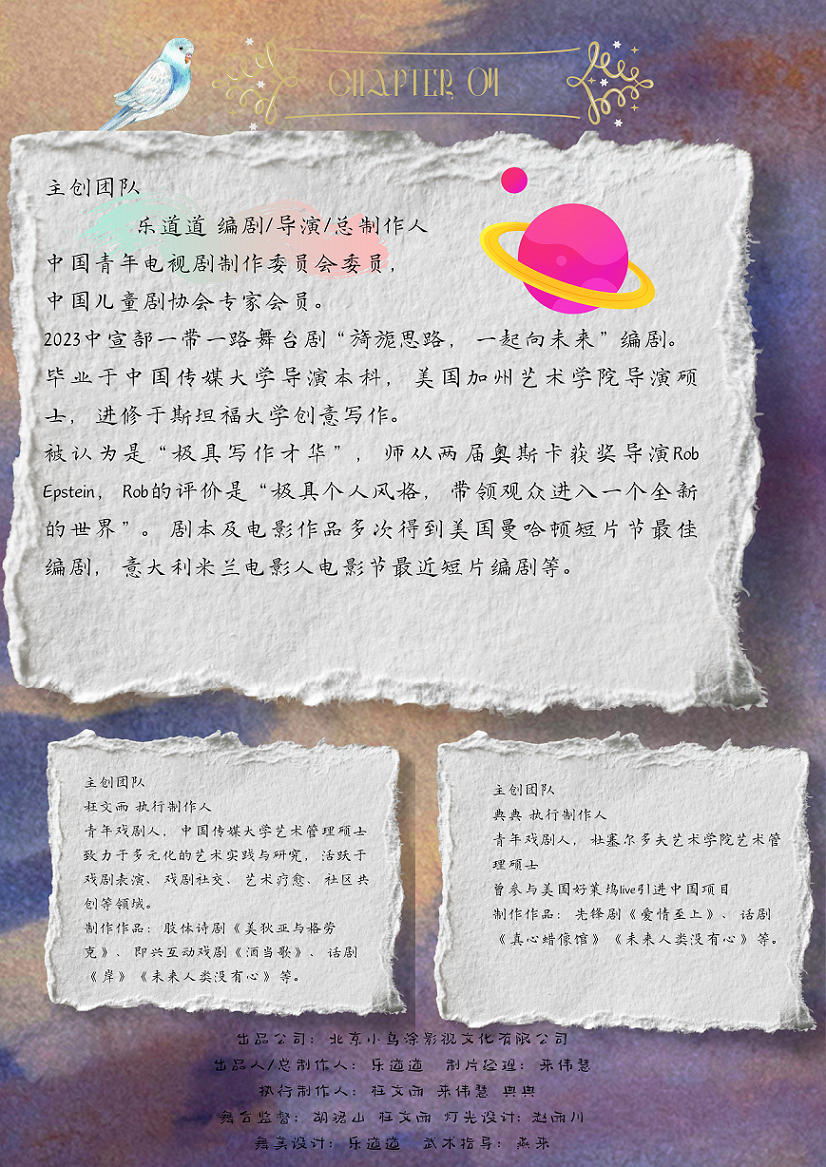 CHAPTER 04
主创团队
乐道道 编剧/导演/总制作人
中国青年电视剧制作委员会委员，
中国儿童剧协会专家会员。
2023中宣部一带一路舞台剧“旖旎思路，一起向未来”编剧。
毕业于中国传媒大学导演本科，美国加州艺术学院导演硕
士，进修于斯坦福大学创意写作。
被认为是“极具写作才华”，师从两届奥斯卡获奖导演Rob
Epstein，Rob的评价是“极具个人风格，带领观众进入一个全新
的世界”。剧本及电影作品多次得到美国曼哈顿短片节最佳
编剧，意大利米兰电影人电影节最近短片编剧等。
主创团队
枉文雨 执行制作人
青年戏剧人，中国传媒大学艺术管理硕士
致力于多元化的艺术实践与研究，活跃于
戏剧表演、戏剧社交、艺术疗愈、社区共
创等领域。
制作作品：肢体诗剧《美狄亚与格劳
克》、即兴互动戏剧《酒当歌》、话剧
《岸》《未来人类没有心》等。
主创团队
典典 执行制作人
青年戏剧人，杜塞尔多夫艺术学院艺术管
理硕士
曾参与美国好莱坞live引进中国项目
制作作品：先锋剧《爱情至上》、话剧
《真心蜡像馆》《未来人类没有心》等。
出品公司：北京小鸟涂影视文化有限公司
出品人/总制作人：乐道道 制片经理：来伟慧
执行制作人：枉文雨 来伟慧 典典
舞台监督：胡珺山 枉文雨 灯光设计：赵雨川
舞美设计：乐道道 武术指导：燕来